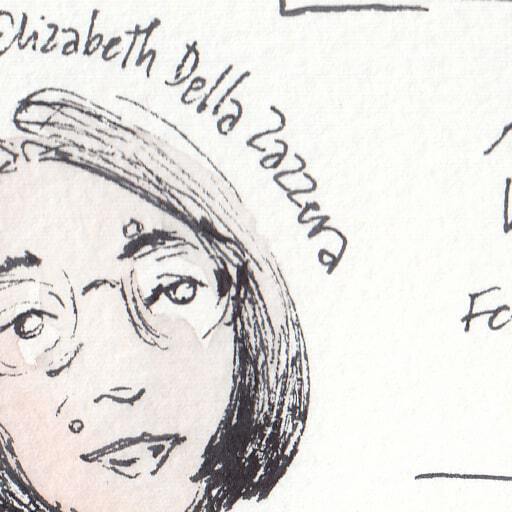 Elizabeth Della Zazzera
Fo